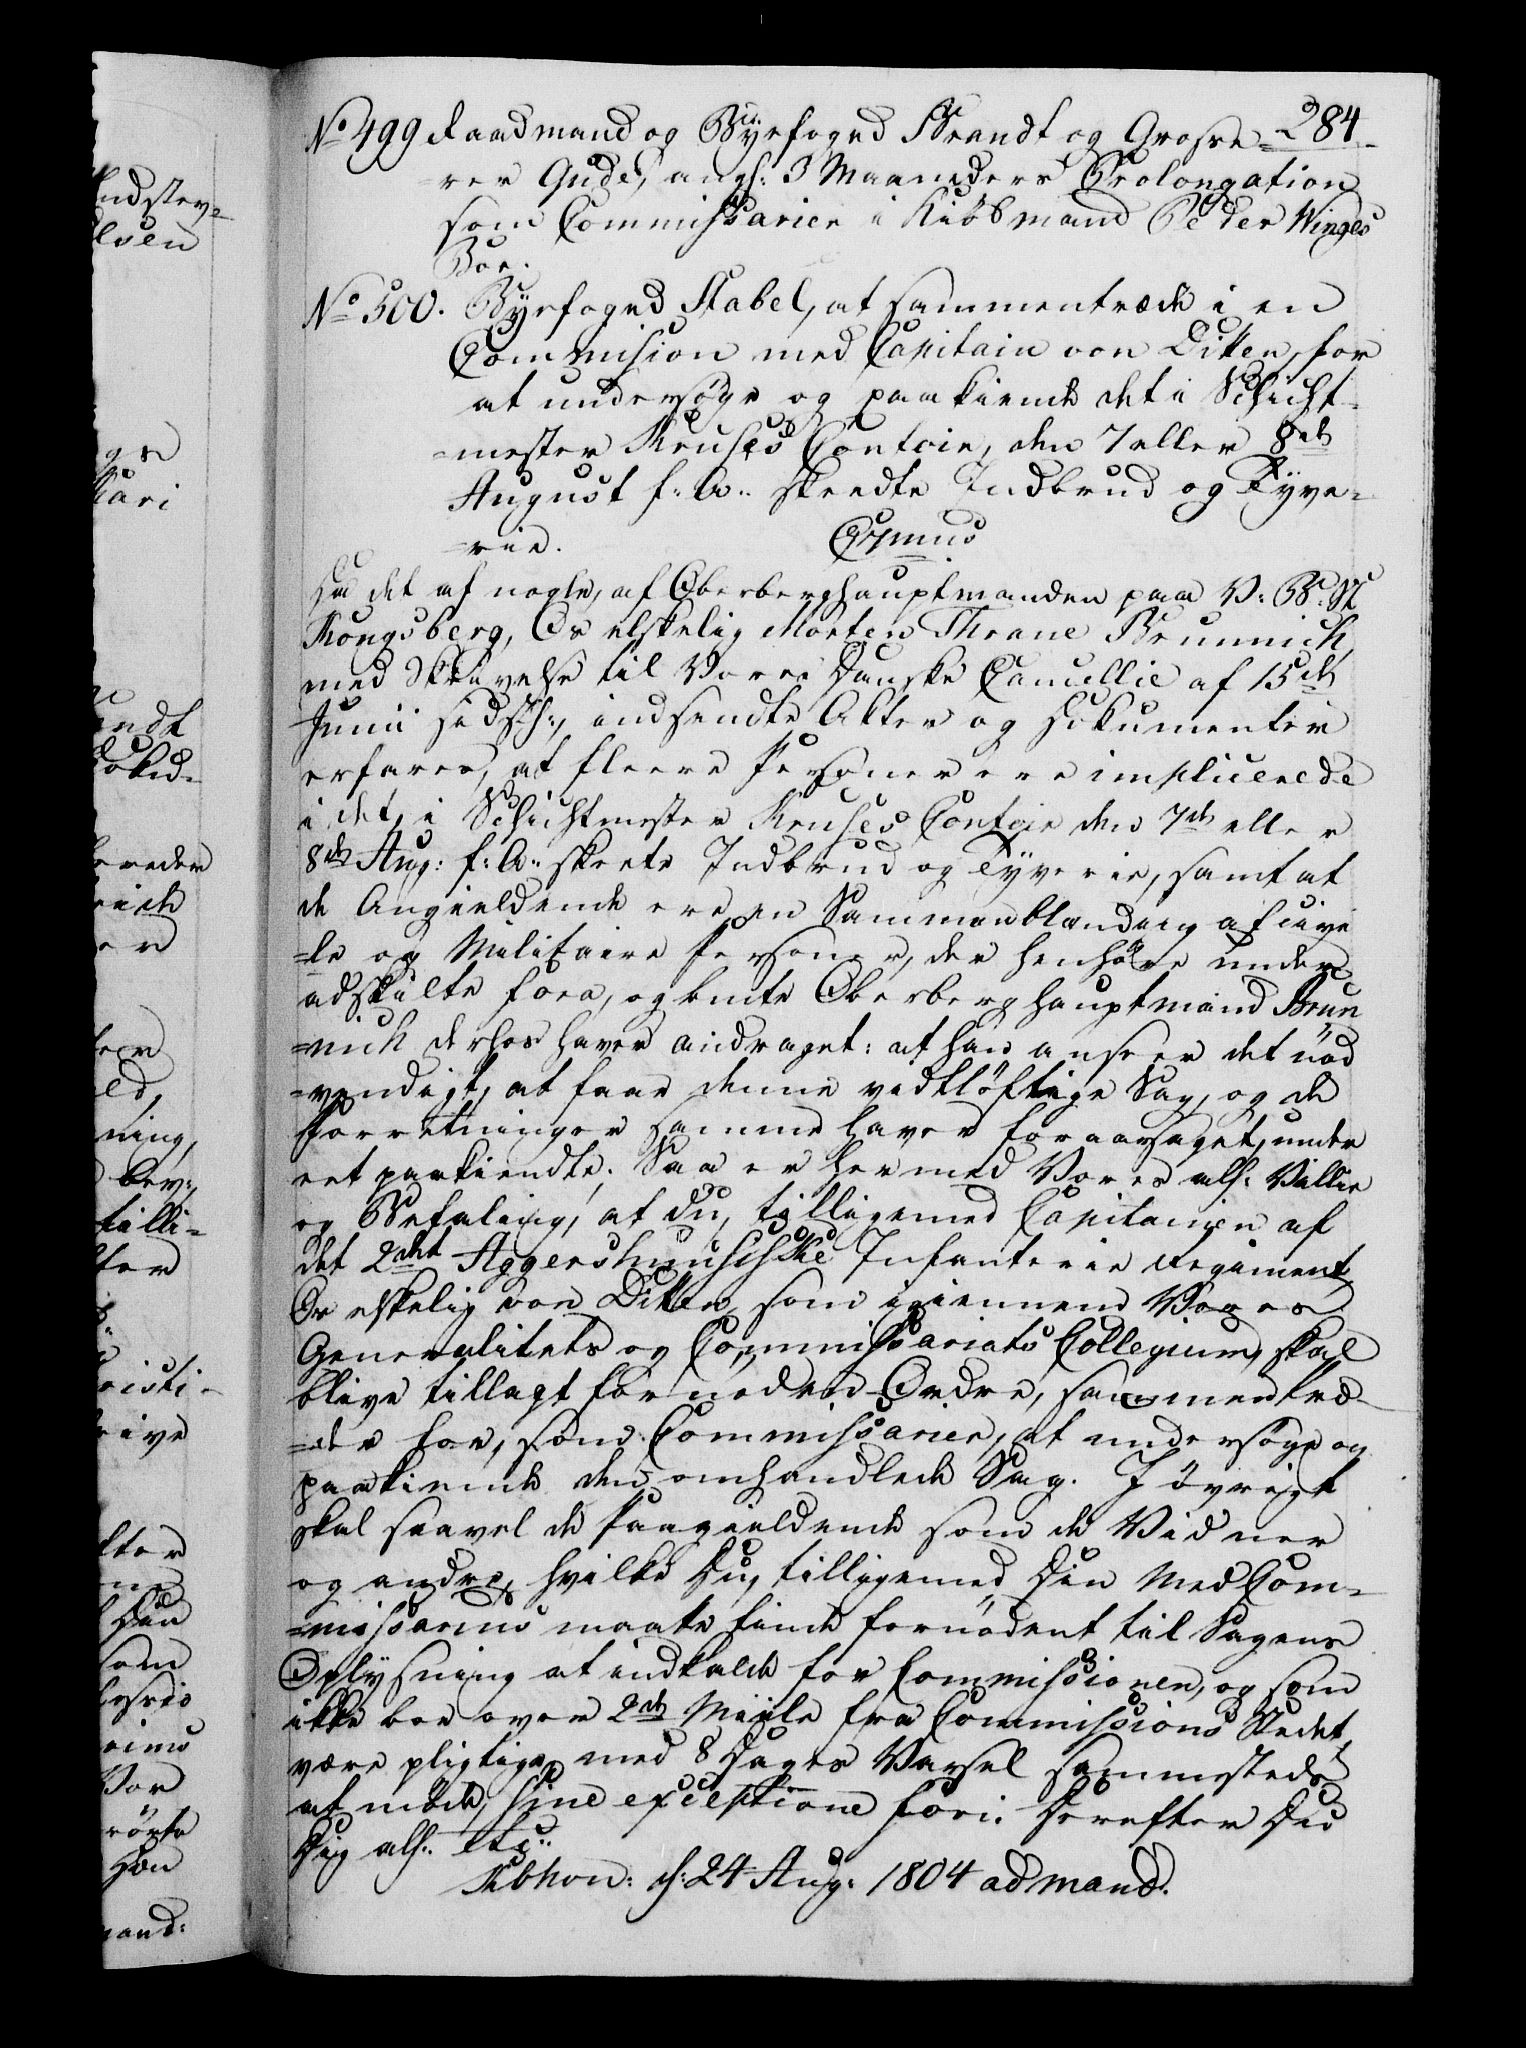 284
No 499 Raadmand og Byefoged Brandt og Grosse=
rer Gude, angl: 3 Maaneders Prolongation
som Commissarier i Kiöbmand Peder Winges
Boe.
No 500. Byefoged Stabel, at sammentræde i en
Commision med Capitain von Ditten, for
at undersøge og paakiende det i Schicht-
=mester Kruses Contoir, den 7 eller 8de
August f: A: skeedte Indbrud og Tyve=
=rie.
C7mus
Da det af nogle, af Oberberghauptmanden paa V: B: St
Kongsberg, Os elskelig Morten Thrane Brunnich,
med Skrivelse til Vores Danske Cancellie af 15de
Junii sidstl:, indsendte Akter og Dokumenter
erfares, at fleere Personer ere implicerede
i det, i Schichtmester Kruses Contoir den 7de eller
8de Aug: f: A: skeete Indbrud og Tyverie, samt at
de Angieldende ere en Sammenblanding af civi
=le og Militaire Personer, der henhøre under
adskilte fora, og bemte Oberberghauptmand Brün
=nich derhos haver andraget: at han anseer det nöd
=vendigt, at faae denne vidtløftige Sag, og de
Forretninger samme haver foraarsaget, under
eet paakiendte; Saa er hermed Vores alf: Villie
og Befaling, at du, tilligemed Capitainen af
det 2det Aggershuusiske Infanterie Regiment
Os elskelig von Ditten, som igiennem Vores
Generalitets og Commissariats Collegium, skal
blive tillagt fornøden Ordre, sammentræ=
=der for, som Commissarier, at undersøge og
paakiende den omhandlede Sag. I øvrigt
skal saavel de Paagieldende som de Vidner
og andre, hvilke Du, tilligemed Din Med Com=
=missarius maatte finde fornødent til Sagens
Oplysning at indkalde for Commissionen, og som
ikke boe over 2de Miile fra Commissions Stedet,
være pligtige med 8 Dages Varsel sammesteds
at møde, sine exceptione fori. Derefter Du
Dig alf: etc:
Kbhvn: d: 24 Aug: 1804 ad mand.